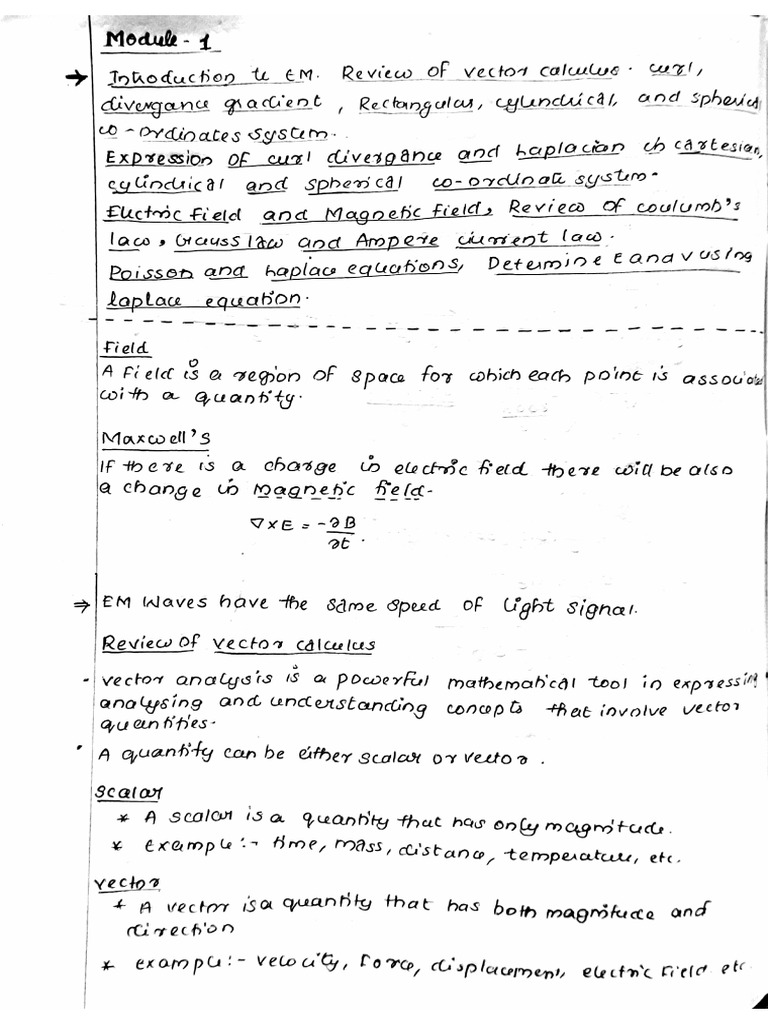 Module - 1
→ Introduction to EM. Review of vector calculus. curl,
divergance gradient, Rectangular, cylindrical, and spherical
co-ordinates system.
Expression of curl divergance and Laplacian in cartesian,
cylindrical and spherical co-ordinate system.
Electric field and Magnetic field, Review of coulumb's
law, Gauss law and Ampere current law.
Poisson and Laplace equations, Determine E and V using
laplace equation.
Field
A Field is a region of space for which each point is associated
with a quantity.
Maxwell's
If there is a charge in electric field there will be also
a change in Magnetic field.
∇×E = -∂B
∂t.
⇒ EM Waves have the same speed of light signal.
Review of vector calculus
- vector analysis is a powerful mathematical tool in expressing
analysing and understanding concepts that involve vector
quantities.
· A quantity can be either scalar or vector.
scalar
* A scalar is a quantity that has only magnitude.
* example:- time, mass, distance, temperature, etc.
vector
* A vector is a quantity that has both magnitude and
direction
* example:- velocity, Force, displacement, electric field etc